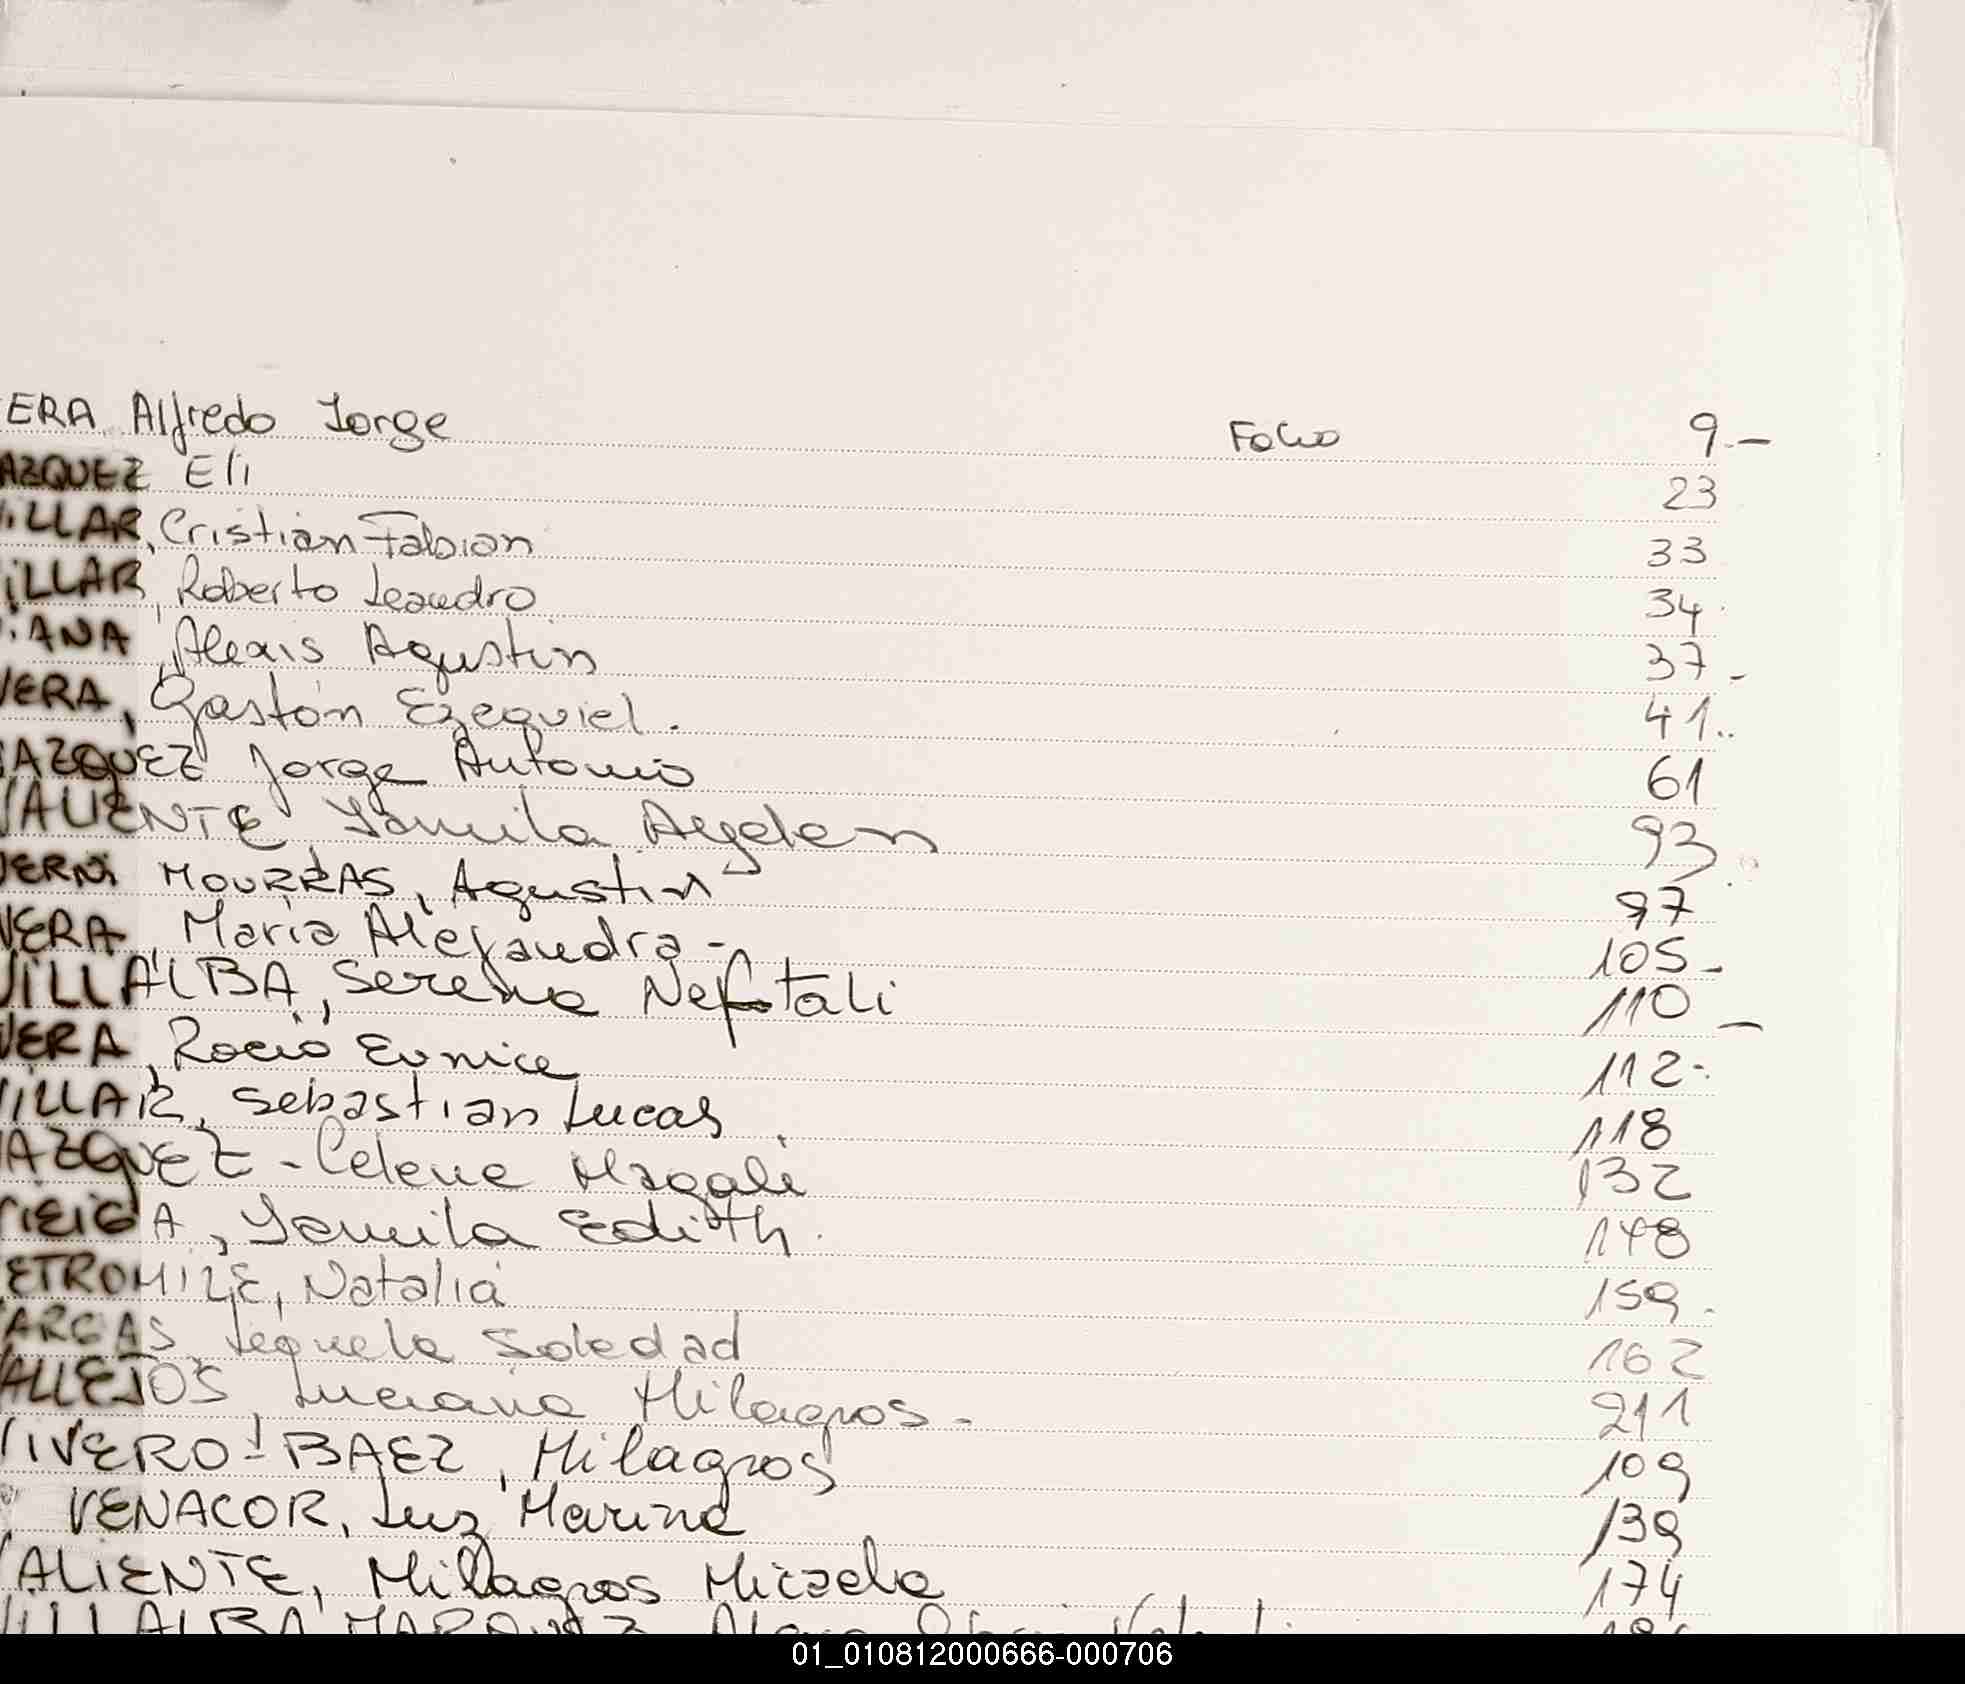 ERA Alfredo Jorge Folio 9.-
AZQUEZ Eli 23
VILLAR, Cristian Fabian 33
VILLAR, Roberto Leandro 34
IANA, Alexis Agustin 37-
VERA, Gastón Ezequiel. 41..
AZQUEZ Jorge Antonio 61
VALIENTE Yamila Ayelen 93
VERNI MOURRAS, Agustin 97
VERA, Maria Alejandra- 105-
VILLALBA, Serena Neftali 110-
VERA, Rocio Eunice 112-.
VILLAR, Sebastian Lucas 118
AZQUEZ - Celene Magali 132
VIEIGA, Yamila Edith. 148
ETROMILE, Natalia 159.
ARGAS, Sequela Soledad 162
VALLEJOS, Luciana Milagros- 211
VIVERO-BAEZ, Milagros 109
VENACOR, Luz Marina 139
VALIENTE, Milagros Micaela 174
VILLALBA MARQUEZ
01_010812000666-000706